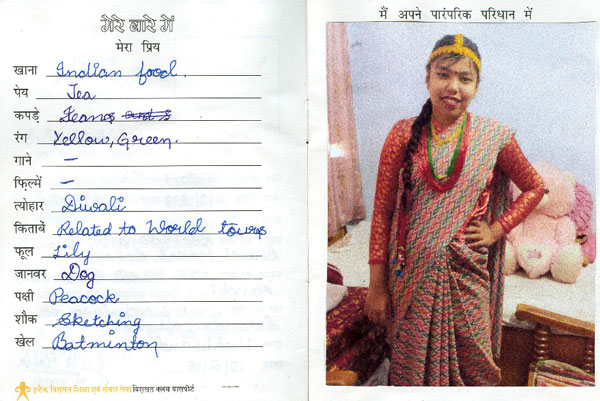 मेरे बारे में
मेरा प्रिय
खाना Indian food.
पेय Tea
कपड़े Jeans
रंग Yellow, Green.
गाने –
फ़िल्में –
त्योहार Diwali
किताबें Related to World tours
फूल Lily
जानवर Dog
पक्षी Peacock
शौक Sketching
खेल Batminton
इन्टैक विरासत शिक्षा एवं संचार सेवा विरासत क्लब पासपोर्ट
मैं अपने पारंपरिक परिधान में